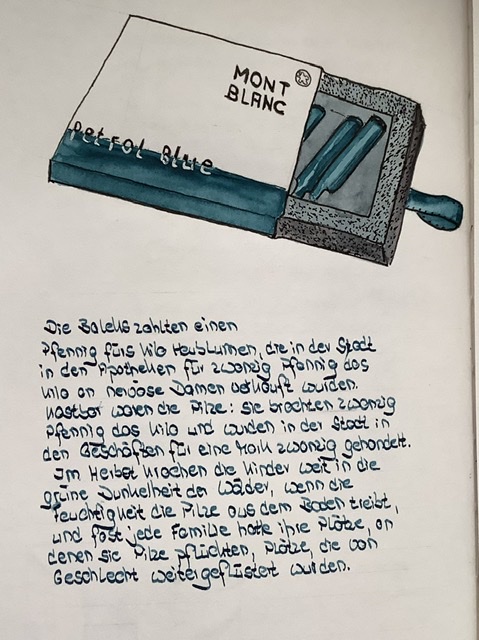 MONT
BLANC
Petrol Blue
Die Baleks zahlten einen
Pfennig fürs Kilo Heublumen, die in der Stadt
in den Apotheken für zwanzig Pfennig das
Kilo an nervöse Damen verkauft wurden.
Kostbar waren die Pilze: sie brachten zwanzig
Pfennig das Kilo und wurden in der Stadt in
den Geschäften für eine Mark zwanzig gehandelt.
Im Herbst krochen die Kinder weit in die
grüne Dunkelheit der Wälder, wenn die
Feuchtigkeit die Pilze aus dem Boden treibt,
und fast jede Familie hatte ihre Plätze, an
denen sie Pilze pflückten, Plätze, die von
Geschlecht weitergeflüstert wurden.